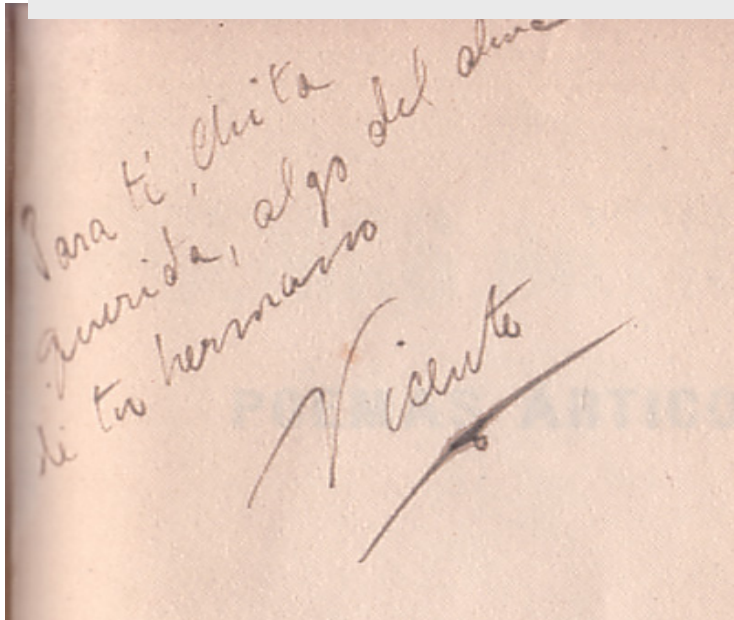 Para ti, Chita
querida, algo del alma
de tu hermano
Vicente
POEMAS ARTICO